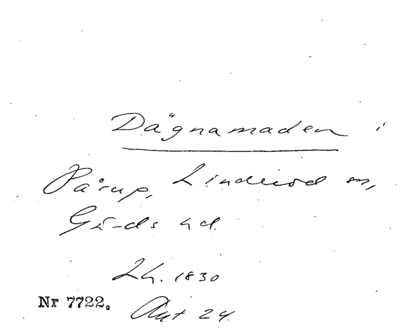 Dägnamaden i
Pårup, Linderöd sn,
Gärds hd.
Lh. 1830
Nr 7722.
Akt 24.